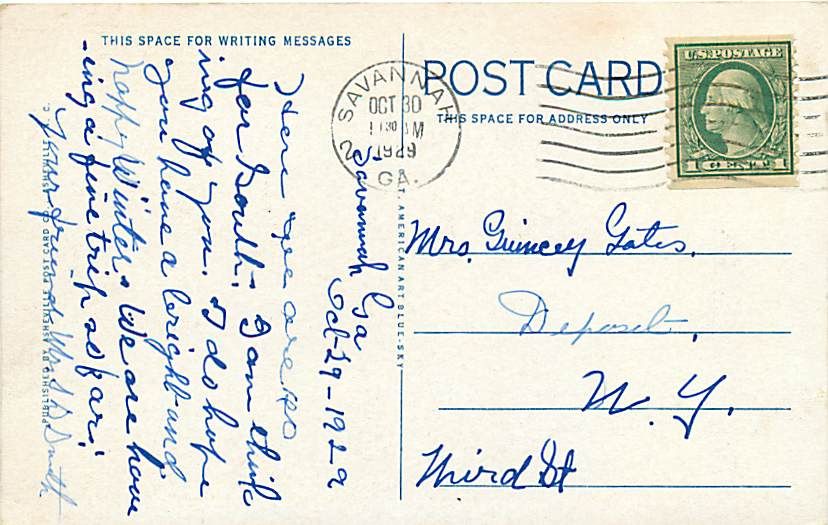 THIS SPACE FOR WRITING MESSAGES
POST CARD
THIS SPACE FOR ADDRESS ONLY
SAVANNAH
OCT 30
1930 AM
1929
2
GA.
U.S. POSTAGE
1 CENT 1
Savannah Ga
Oct-29-1929
Here we are so
far South. I am think
ing of you. I do hope
you have a bright and
happy Winter. We are hav
-ing a fine trip so far.
Your friend Mrs Smith
Mrs. Quincey Gates.
Deposit,
N. Y.
Third St
PUBLISHED BY ASHEVILLE POST CARD CO., ASHEVILLE
AMERICAN ART BLUE-SKY